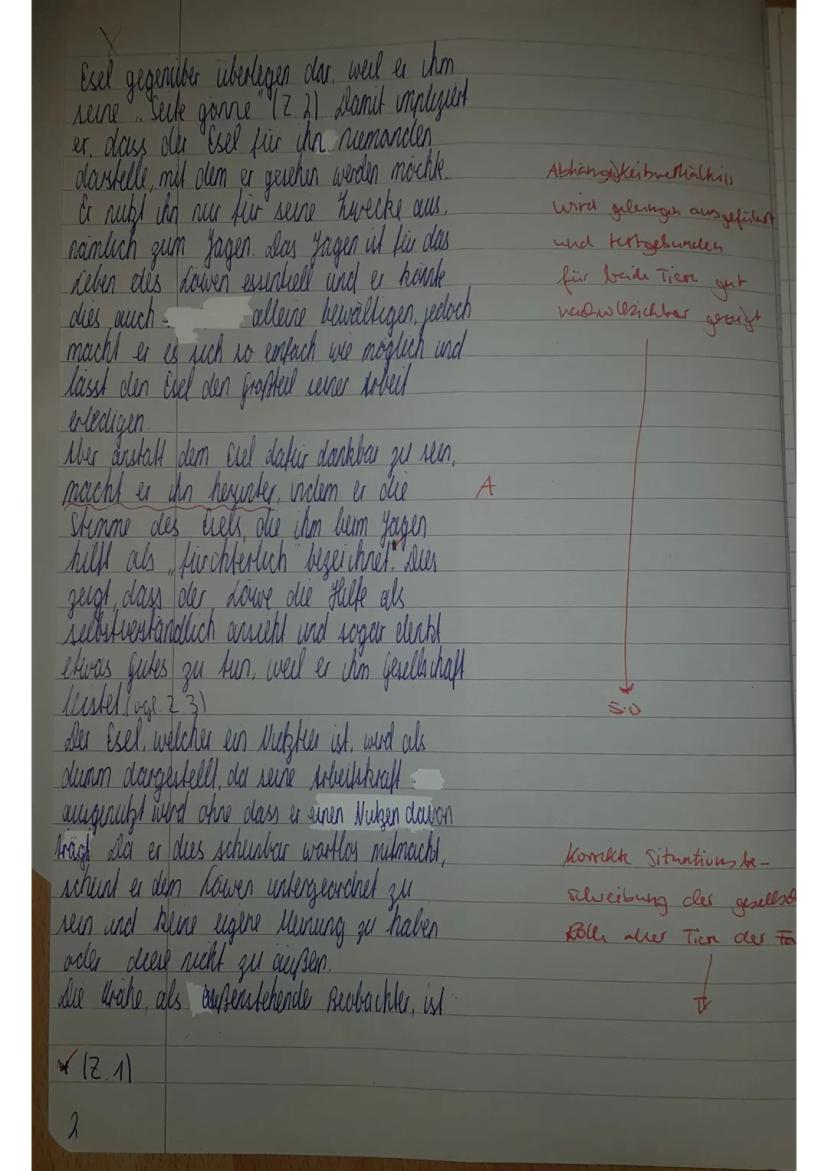 Esel gegenüber überlegen dar, weil er ihm
seine „Seite gönne" (Z. 2) Damit impliziert
er, dass der Esel für ihn niemanden
darstelle, mit dem er gesehen werden möchte.
Er nutzt ihn nur für seine Zwecke aus,
nämlich zum Jagen. Das Jagen ist für das
Leben des Löwen essentiell und er könnte
dies auch alleine bewältigen, jedoch
macht er es sich so einfach wie möglich und
lässt den Esel den Großteil seiner Arbeit
erledigen
Aber anstatt dem Esel dafür dankbar zu sein,
macht er ihn herunter, indem er die
Stimme des Esels, die ihm beim Jagen
hilft als „fürchterlich" bezeichnet. Dies
zeigt, dass der Löwe die Hilfe als
selbstverständlich ansieht und sogar denkt
etwas gutes zu tun, weil er ihm Gesellschaft
leistet (vgl. Z. 3)
Der Esel, welcher ein Nutztier ist, wird als
dumm dargestellt, da seine Arbeitskraft
ausgenutzt wird ohne dass er einen Nutzen davon
trägt. Da er dies scheinbar wortlos mitmacht,
scheint er dem Löwen untergeordnet zu
sein und keine eigene Meinung zu haben
oder diese nicht zu äußen.
Die Krähe, als außenstehende Beobachter, ist
(Z. 1)
2
Abhängigkeitsverhältnis
wird gelungen ausgeführt
und textgebunden
für beide Tiere gut
nachvollziehbar gezeigt
A
s.o
Korrekte Situationsbe-
schreibung der gesellsch
Rolle aller Tiere der Fa